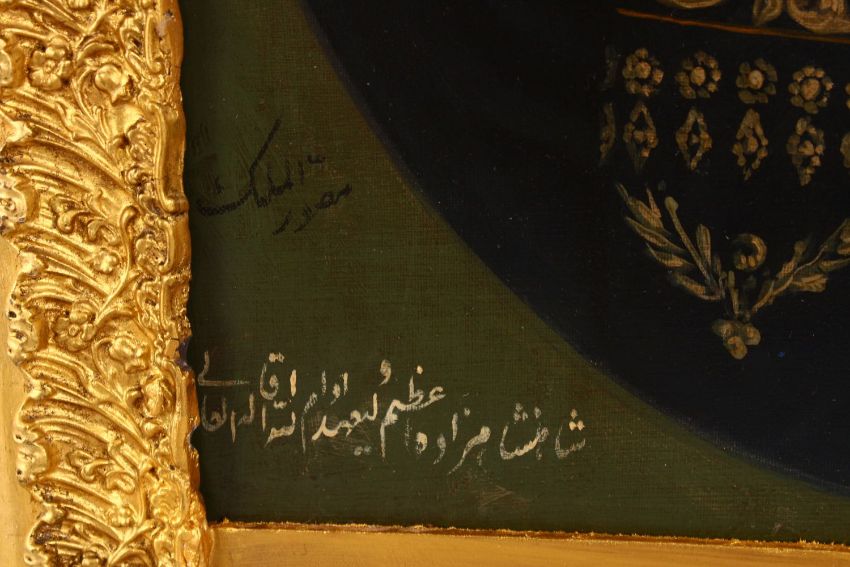 مصور الملک
شاهنشاهزاده اعظم ولیعهد ادام الله اقباله العالی